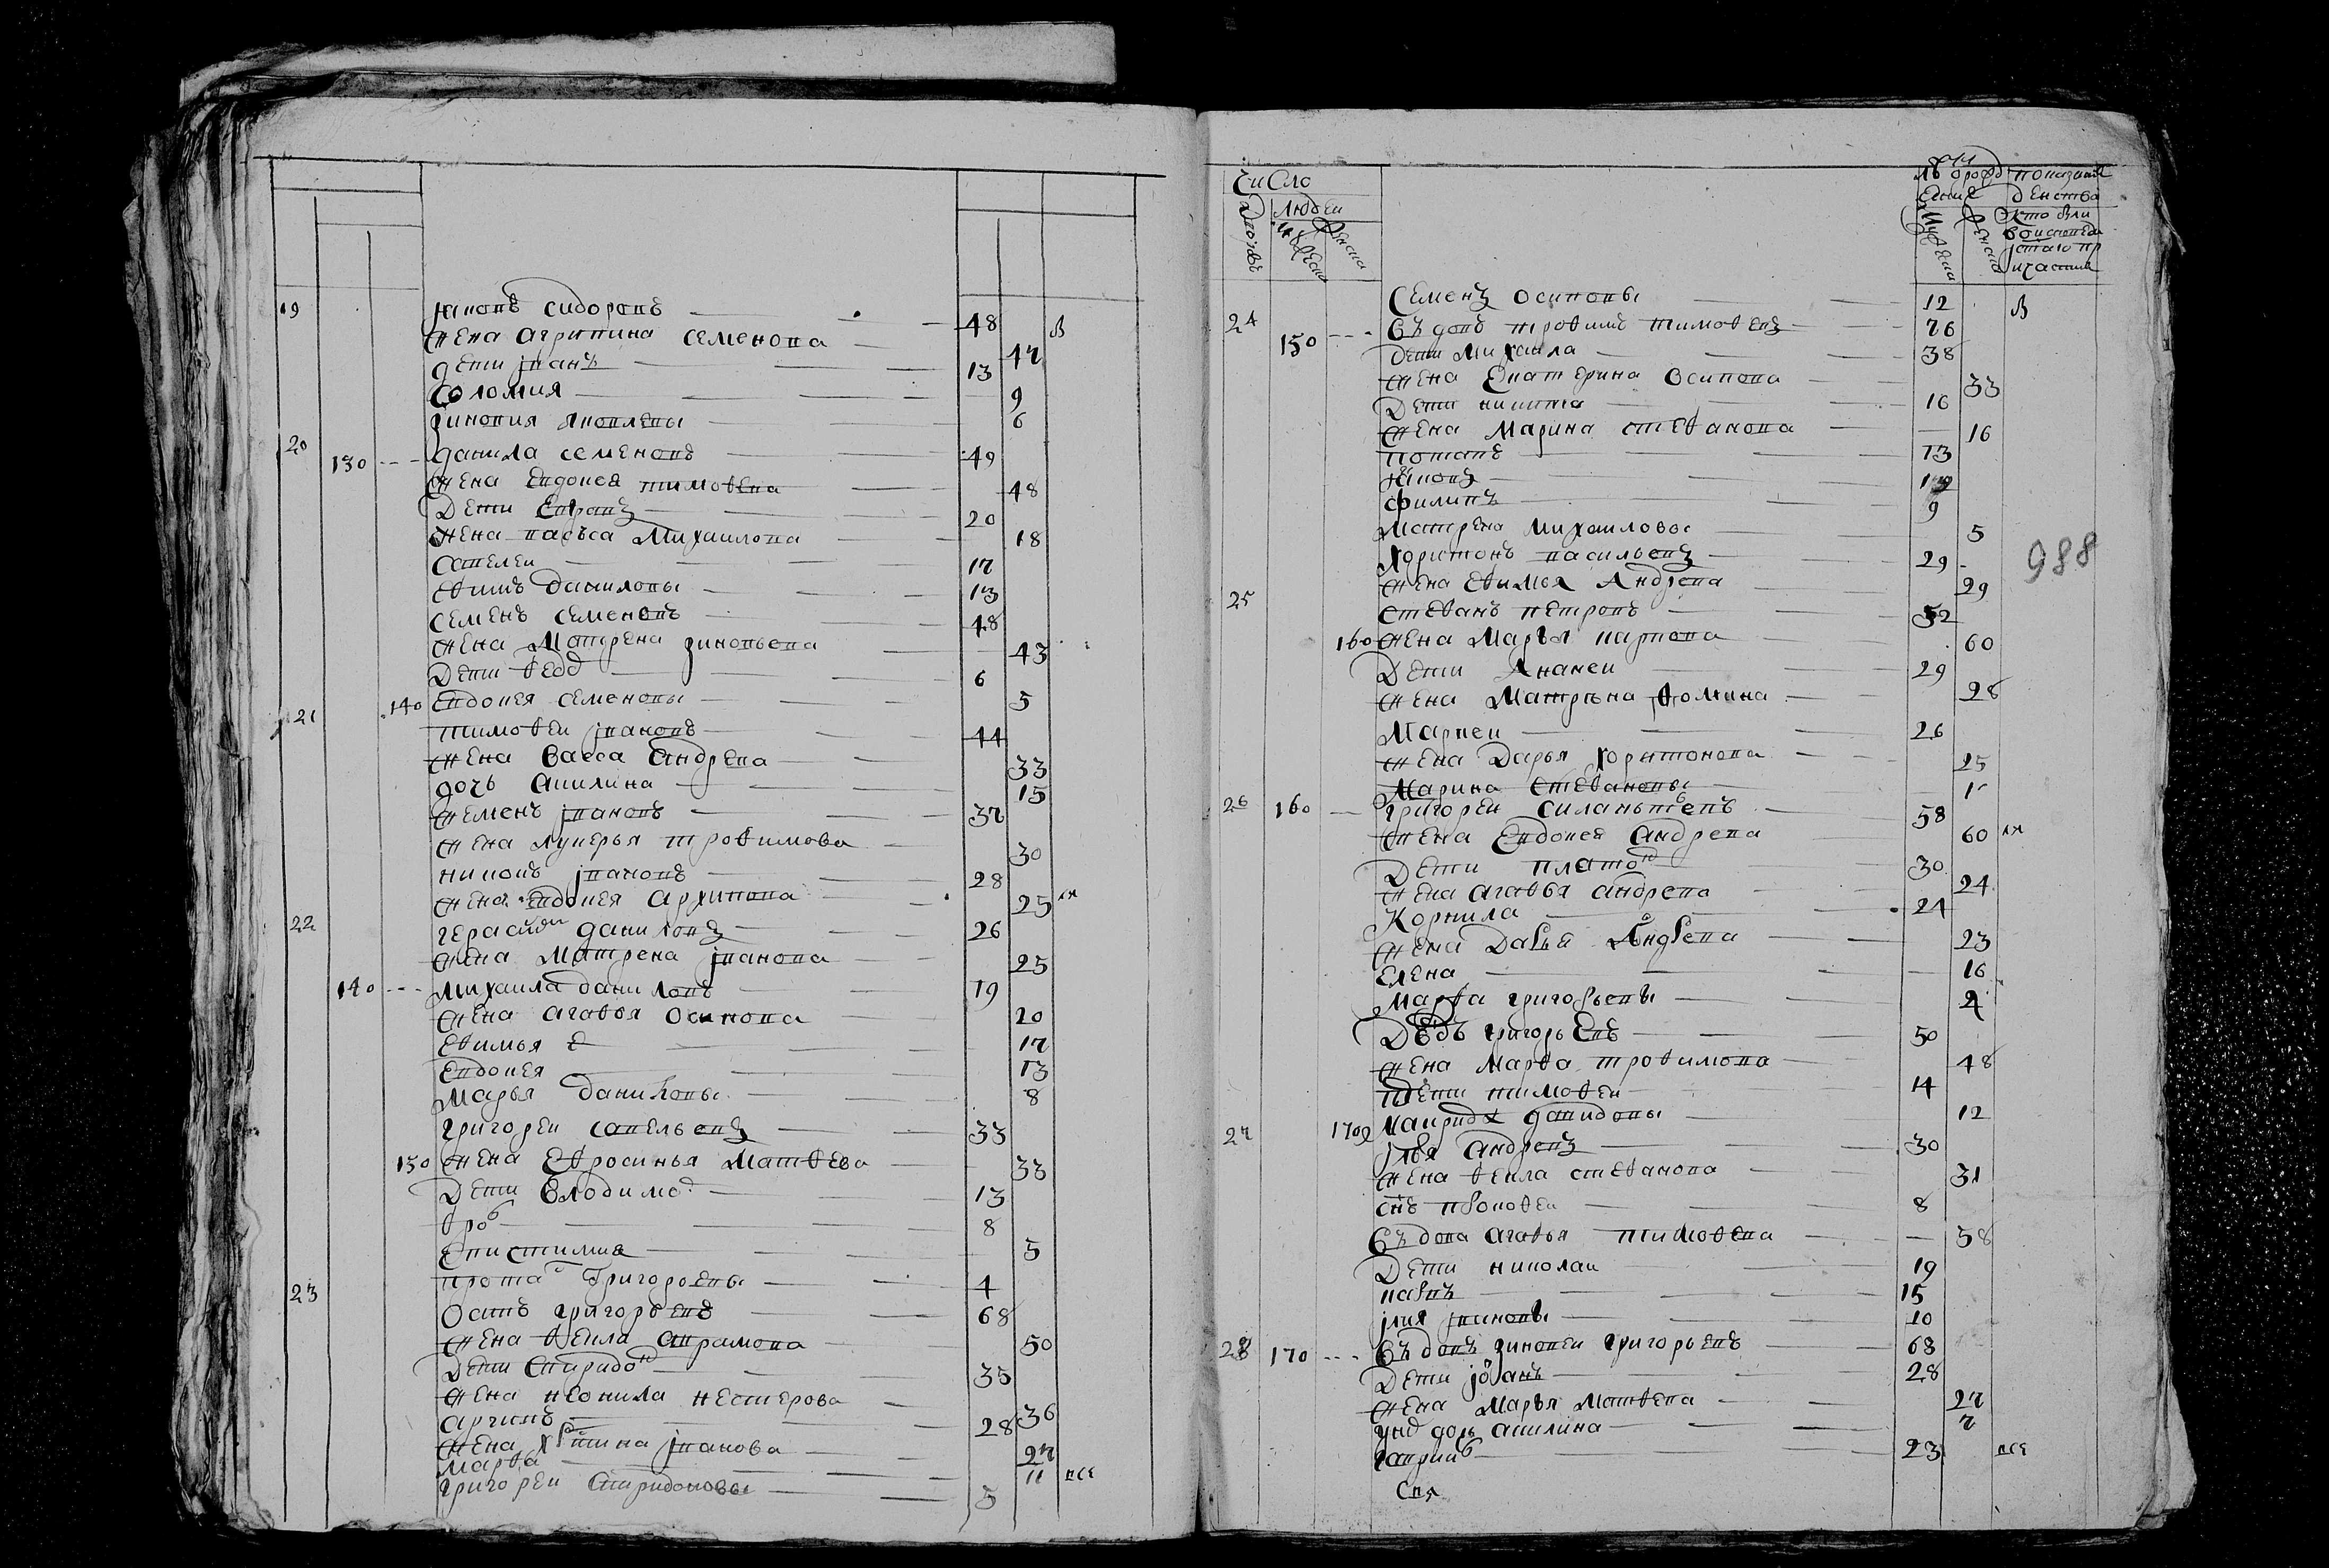 19 Иаковъ Сидоровъ 48 в
жена Агрипина Семенова 47
дети Иванъ 13
Соломия 9
Зиновия Яковлевы 6
20 130 Данила Семеновъ 49
жена Евдокея Тимоѳева 48
Дети Евграѳъ 20
жена Васъса Михаилова 18
Савелеи 17
Еѳимъ Даниловы 13
Семенъ Семеновъ 48
жена Матрена Зиновьева 43
Дети Ѳедо 6
140 Евдокея Семеновы 5
21 Тимоѳеи Ивановъ 44
жена Васса Андрева 33
дочь Акилина 15
Семенъ Ивановъ 37
жена Лукерья Троѳимова 30
Никонъ Ивановъ 28
жена Евдокея Архипова 25
22 Герасимъ Даниловъ 26
жена Матрена Иванова 25
140 Михаила Даниловъ 19
жена Агаѳья Осипова 20
Еѳимья 17
Евдокея 13
Марья Даниловы 8
Григореи Савельевъ 33
150 жена Еѳросинья Матѳева 33
Дети Влодимо 13
Ѳро 8
Епистимия 5
Прота Григорьевы 4
23 Осипъ Григорьевъ 68
жена Ѳекла Аврамова 50
Дети Спиридо 35
жена Неонила Нестерова 36
28
жена Хрстина Иванова 27
Марѳа 11 все
Григореи Спиридоновы 5
Число
Людеи
Дворовъ
Семенъ Осиповы 12 в
24 Въдовъ Троѳимъ Тимоѳевъ 76
150 Дети Михаила 38
жена Екатерина Осипова 33
Дети Никита 16
жена Марина Стеѳанова 16
Потапъ 13
Иаковъ
Филипъ 9
Матрена Михаиловы 5
Харитонъ Васильевъ 29
жена Еѳимья Андрева 29
988
25 Стеѳанъ Петровъ 52
160 жена Марья Карпова 60
Дети Ананеи 29
жена Матрена Ѳомина 26
Маркеи 26
жена Дарья Харитонова 25
Марина Стеѳановы
26 160 Григореи Силантьевъ 58
жена Евдокея Андрева 60
Дети Платон 30
жена Агаѳья Андрева 24
Корнила 21
жена Дарья Андрева 23
Елена 16
Марѳа Григорьевы
Григорьевъ 50
жена Марѳа Троѳимова 48
Дети Тимоѳеи 14
170 Давидовы 12
27 Илья Андревъ 30
жена Ѳекла Стеѳанова 31
снъ Прокоѳеи 8
Въдова Агаѳья Тимоѳева 58
Дети Николаи 19
Карпъ 15
Илия Ивановы 10
28 170 Въдовъ Зиновеи Григорьевъ 68
Дети Иванъ 28
жена Марья Матѳева 27
у нд дочь Акилина 7
Гаврии 23 все
Сия